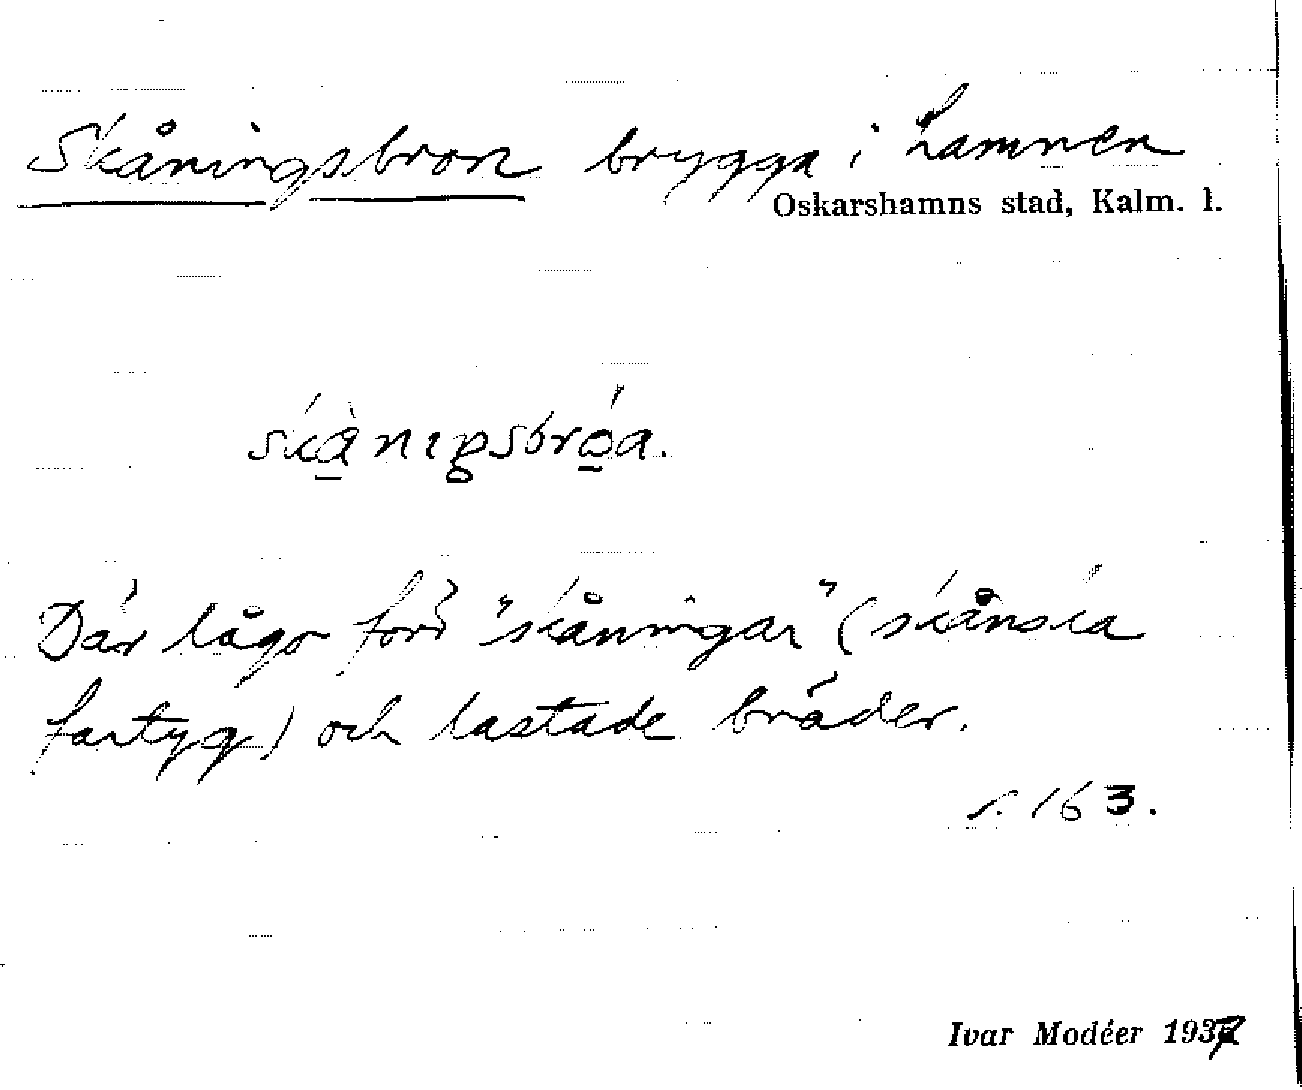 Skåningsbron brygga i hamnen
Oskarshamns stad, Kalm. l.
skå̀nıŋsbro̱a.
Där lågo förr "skåningar" (skånska
fartyg) och lastade bräder.
s. 163.
Ivar Modéer 1937